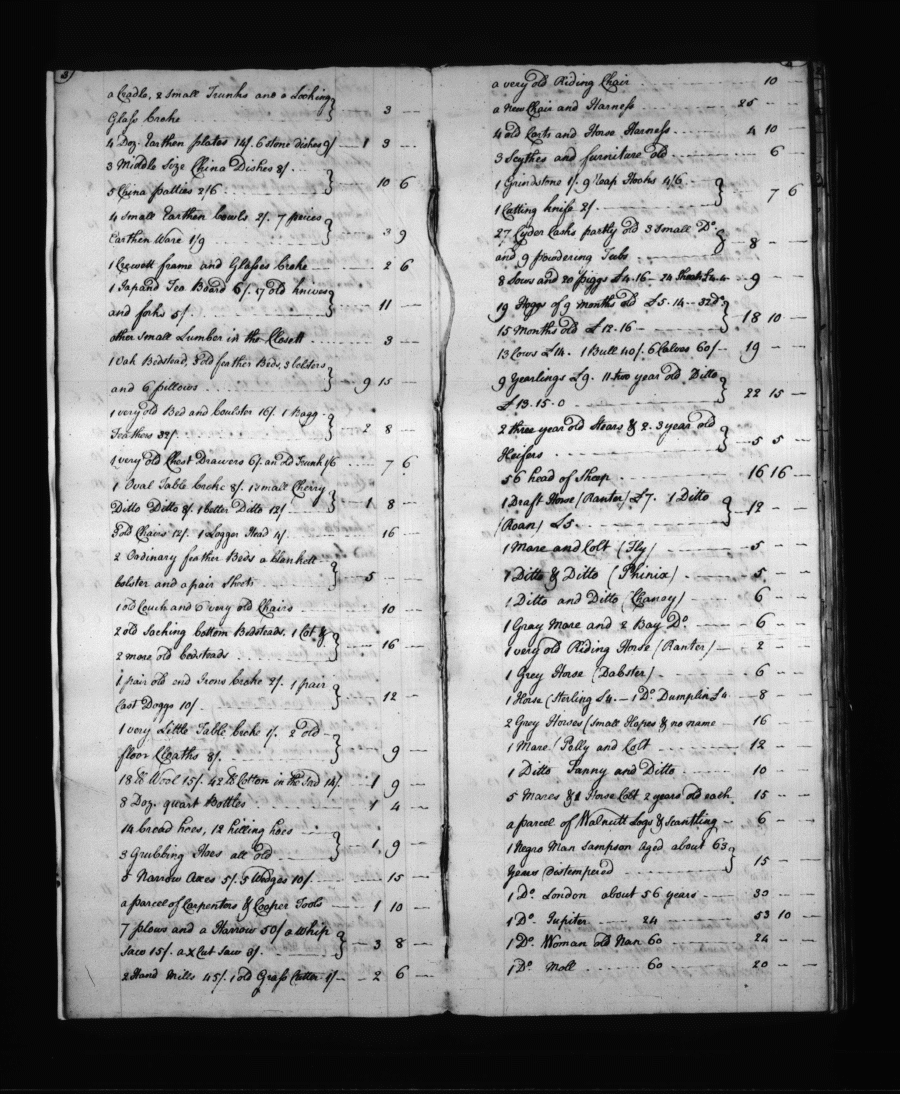 3
a Cradle, 2 Small Trunks and a Looking
Glass broke 3 —
4 Doz. Earthen plates 14/. 6 stone dishes 9/ 1 3 —
3 Middle Size China Dishes 8/.
5 China patties 2/6 10 6
4 Small Earthen bowls 2/. 7 peices
Earthen Ware 1/9 3 9
1 Crewett frame and Glasses broke 2 6
1 Japand Tea Board 6/. 17 old knives
and forks 5/. 11 —
other small Lumber in the Closett 3 —
1 Oak Bedstead, 3 old feather Beds, 3 bolsters
and 6 pillows 9 15 —
1 very old Bed and boulster 16/. 1 Bagg
Feathers 32/. 2 8 —
1 very old Chest Drawers 6/. an old Trunk 1/6 7 6
1 Oval Table broke 8/. 1 small Cherry
Ditto Ditto 8/. 1 better Ditto 12/ 1 8 —
old Chairs 12/. 1 Logger Head 4/ 16 —
2 Ordinary feather Beds a blankett
bolster and a pair Sheets 5 — —
1 old Couch and very old Chairs 10 —
2 old Sacking bottom Bedsteads. 1 Cot &
2 more old bedsteads 16 —
1 pair old end Irons broke 2/. 1 pair
Cast Doggs 10/. 12 —
1 very Little Table broke 1/. 2 old
floor Cloaths 8/. 9 —
18 lb Wool 15/. 42 lb Cotton in the Sed 14/. 1 9
3 Doz. quart Bottles 1 4 —
14 broad hoes, 12 hilling hoes
3 Grubbing Hoes all old 1 9 —
5 Narrow Axes 5/. 5 Wedges 10/. 15 —
a parcel of Carpenters & Cooper Tools 1 10 —
7 plows and a Harrow 50/ a whip
Saw 15/. a x Cut Saw 3/. 3 8 —
2 Hand Mills 45/. 1 old Grass Cutter 1/ 2 6 —
a very old Riding Chair 10 —
a New Chair and Harness 25 — —
4 old Carts and Horse Harness 4 10 —
3 Scythes and furniture old 6 —
1 Grindstone 1/. 9 Reap Hooks 4/6
1 Cutting knife 2/. 7 6
27 Cyder Casks partly old 3 Small Do
and 9 powdering Tubs 8 — —
8 Sows and 20 piggs £4.16 — 24 Shoats £4.4 9 — —
19 Hoggs of 9 months old £5.14 — 32 Do
15 Months old £12.16 — 18 10 —
13 Cows £14. 1 Bull 40/. 6 Calves 60/ 19 — —
9 Yearlings £9. 11 two year old Ditto
£13.15.0 22 15 —
2 three year old Stears & 2. 3 year old
Heifers 5 5 —
56 head of Sheep 16 16 —
1 Draft Horse (Ranter) £7. 1 Ditto
(Roan) £5. 12 — —
1 Mare and Colt (Fly) 5 — —
1 Ditto & Ditto (Phinix) 5 — —
1 Ditto and Ditto (Chancy) 6 — —
1 Gray Mare and 2 Bay Do 6 — —
1 very old Riding Horse (Ranter) 2 — —
1 Grey Horse (Dabster) 6 — —
1 Horse (Sterling £4. — 1 Do Dumplin £4 8 — —
2 Grey Horses (small Hopes & no name 16 — —
1 Mare (Polly and Colt 12 — —
1 Ditto Fanny and Ditto 10 — —
5 Mares & 1 Horse Colt 2 years old each 15 — —
a parcel of Walnutt Logs & scantling 6 — —
1 Negro Man Sampson Aged about 63
years Distempered 15 — —
1 Do London about 56 years 30 — —
1 Do Jupiter 24 53 10 —
1 Do Woman old Nan 60 24 — —
1 Do Moll 60 20 — —